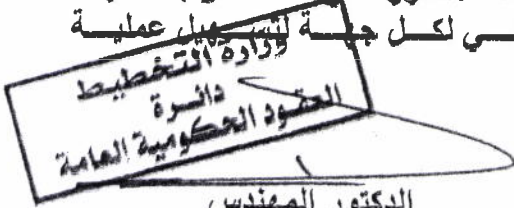 ـي لكـل جهـة لتسـهيل عمليـة
وزارة التخطيط
دائـرة
العقـود الحكومية العامة
الدكتور المهندس